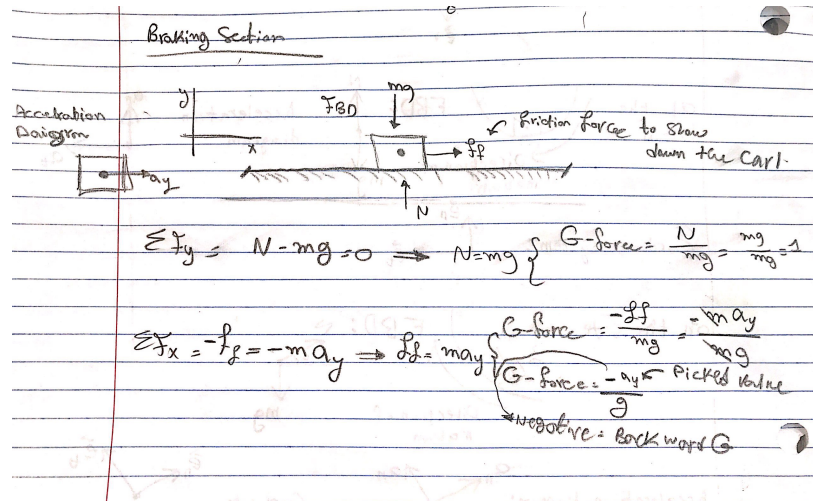 Braking Section
mg
y
FBD
Accelration
Daigrom
friction force to slow
ff
down the Cart.
x
ay
N
ΣFy = N - mg = 0 ⟹ N = mg { G-force = N/mg = mg/mg = 1
ΣFx = -ff = -may ⟹ ff = may { G-force = -ff/mg = -may/mg
G-force = -ay/g ← Picked value
Negative = Backward G